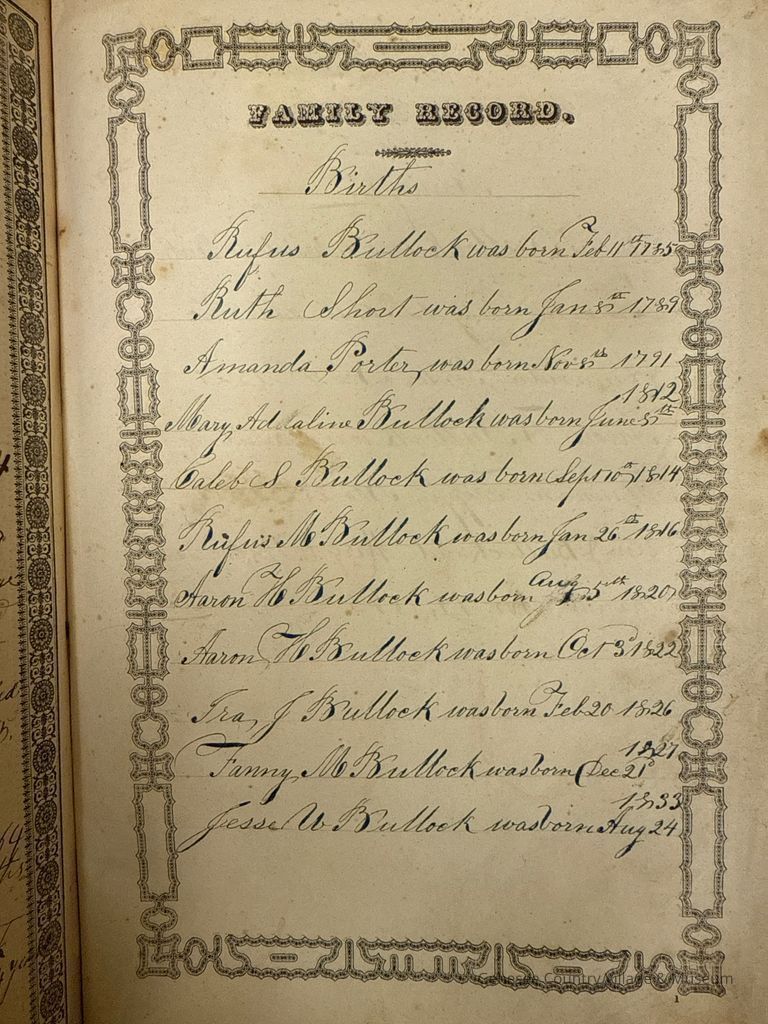 FAMILY RECORD.
Births
Rufus Bullock was born Feb 11th 1785
Ruth Short was born Jan 8th 1789
Amanda Porter, was born Nov 8th 1791
1812
Mary Addaline Bullock was born June 8th
Caleb S Bullock was born Sept 10th 1814
Rufus M Bullock was born Jan 26th 1816
Aaron H Bullock was born Aug 5th 1820
Aaron H Bullock was born Oct 3d 1822
Ira, J Bullock was born Feb 20 1826
1827
Fanny M Bullock was born Dec 21st
1833
Jesse W Bullock was born Aug 24
Country Village & Museum
1